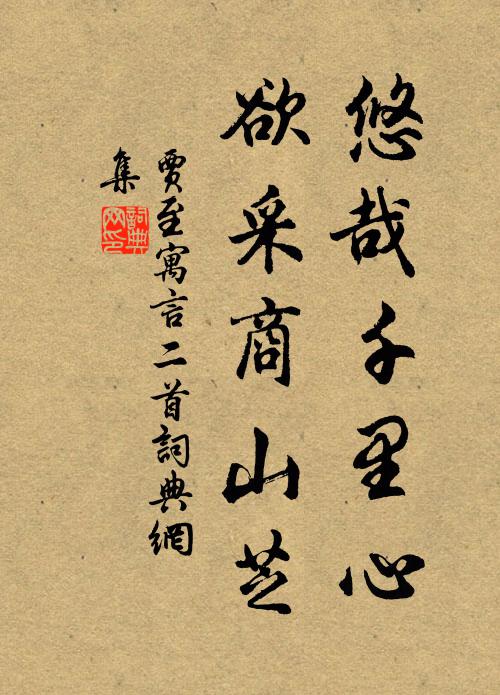 悠哉千里心
欲采商山芝
賈至寓言二首詞典網
集
詞典
网印